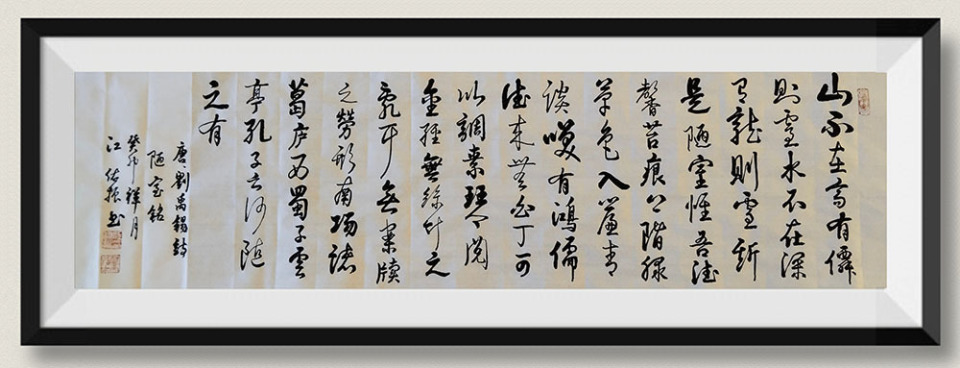 山不在高有僊
則靈水不在深
有龍則靈斯
是陋室惟吾德
馨苔痕上階綠
草色入簾青
談咲有鴻儒
往來無白丁可
以調素琴閱
金經無絲竹之
亂耳無案牘
之勞形南陽諸
葛廬西蜀子雲
亭孔子云何陋
之有
唐劉禹錫詩
陋室銘
癸卯月
江书